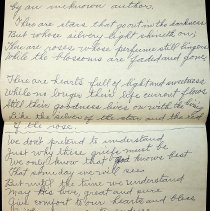 by an unknown author.
"There are stars that go out in the darkness
But whose silvery light shineth on,
There are roses whose perfume still lingers
While the blossoms are faded and gone.
There are hearts full of light and sweetness
While no longer their life current flows
Still their goodness lives on with the living
like the silver of the star and the red
of the rose.
We don't pretend to understand
Just why these griefs must be
We only know that God knows best
That someday we will see
But until the time we understand
May His love, great and sure
Give comfort to our hearts and bless